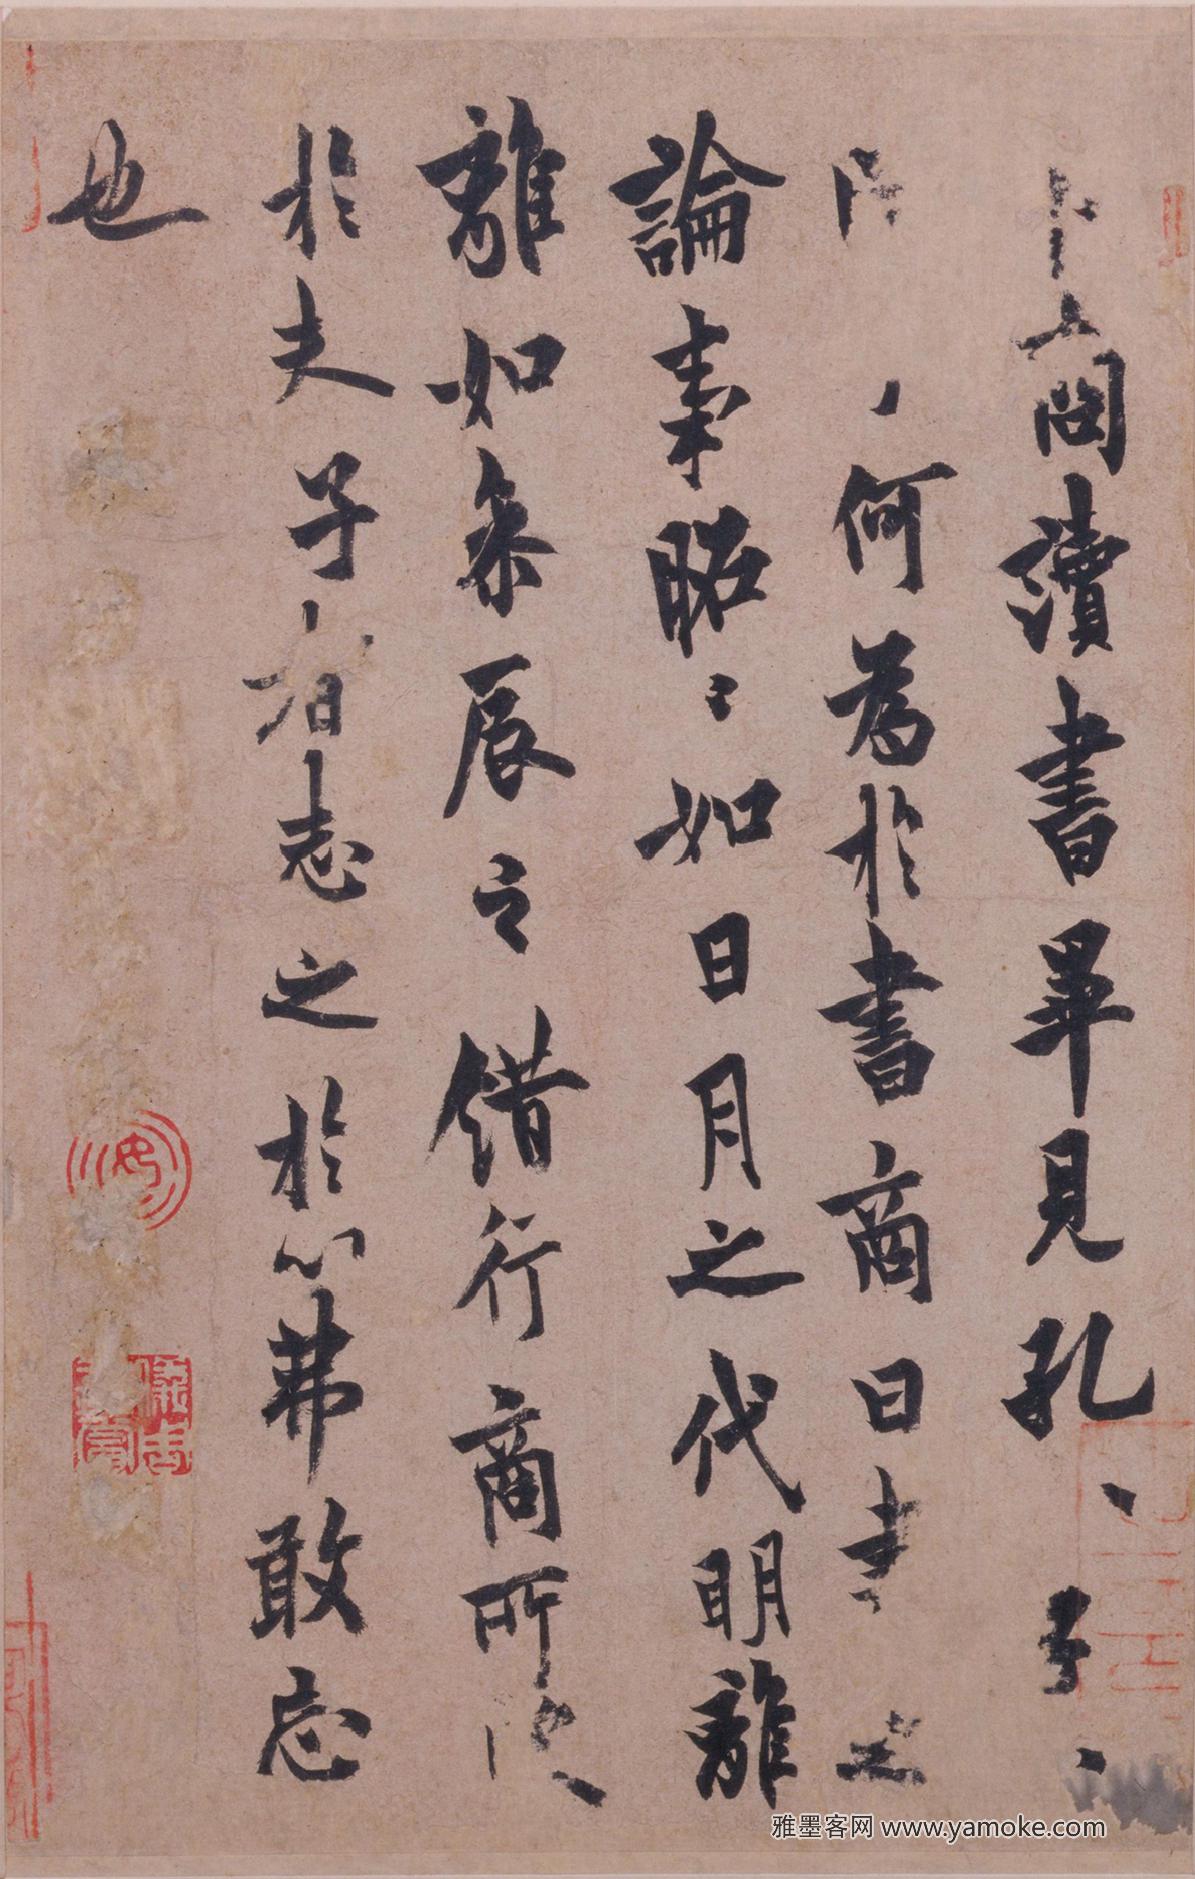 卜商問讀書畢見孔〻子〻
問何為於書商曰書之
論事昭〻如日月之代明離
離如叅辰之錯行商所受
於夫子者志之於心弗敢忘
也
雅墨客网 www.yamoke.com